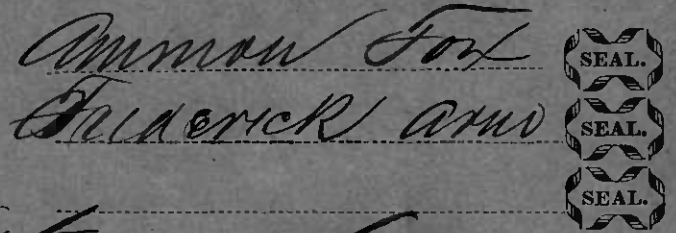 Ammon Fox SEAL.
Friderick Arno SEAL.
SEAL.